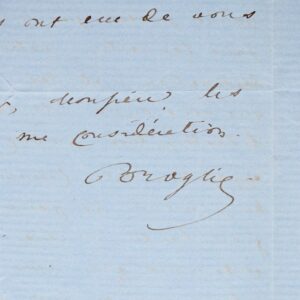 ont eue de vous
, Monsieur, les
me considération.
Broglie